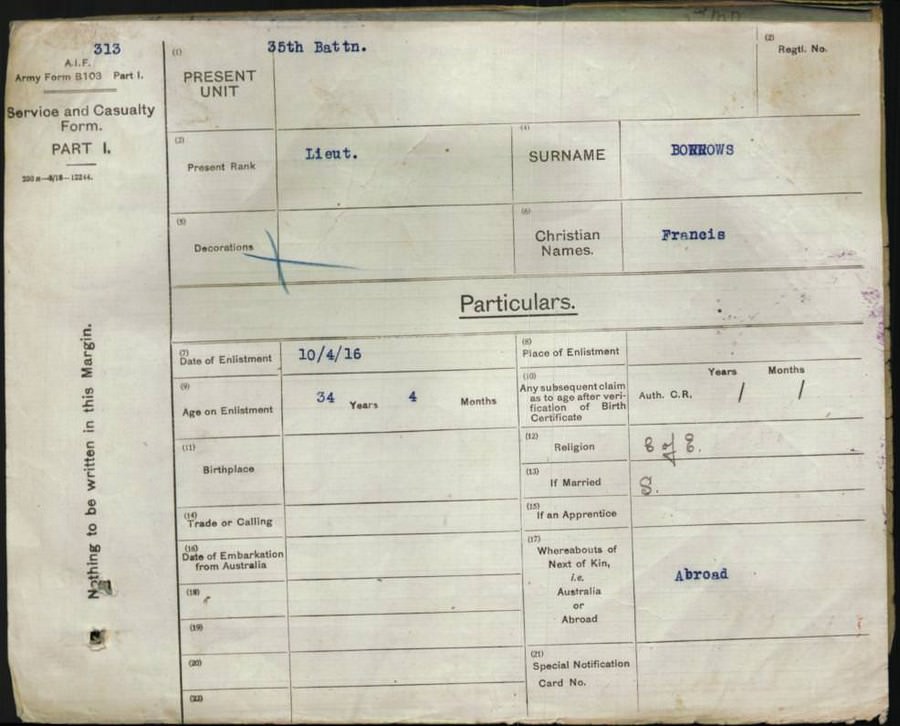 313
A.I.F.
Army Form B103 Part I.
Service and Casualty
Form.
PART I.
200 M—8/18—12244.
Nothing to be written in this Margin.
(1)
PRESENT
UNIT
35th Battn.
(2)
Regtl. No.
(3)
Present Rank
Lieut.
(4)
SURNAME
BORROWS
(5)
Decorations
(6)
Christian
Names.
Francis
Particulars.
(7)
Date of Enlistment
10/4/16
(8)
Place of Enlistment
(9)
Age on Enlistment
34 Years 4 Months
(10)
Any subsequent claim
as to age after veri-
fication of Birth
Certificate
Auth. C.R.
Years Months
/ /
(11)
Birthplace
(12)
Religion
C of E.
(13)
If Married
S.
(14)
Trade or Calling
(15)
If an Apprentice
(16)
Date of Embarkation
from Australia
(17)
Whereabouts of
Next of Kin,
i.e.
Australia
or
Abroad
Abroad
(18)
(19)
(20)
(21)
Special Notification
Card No.
(22)